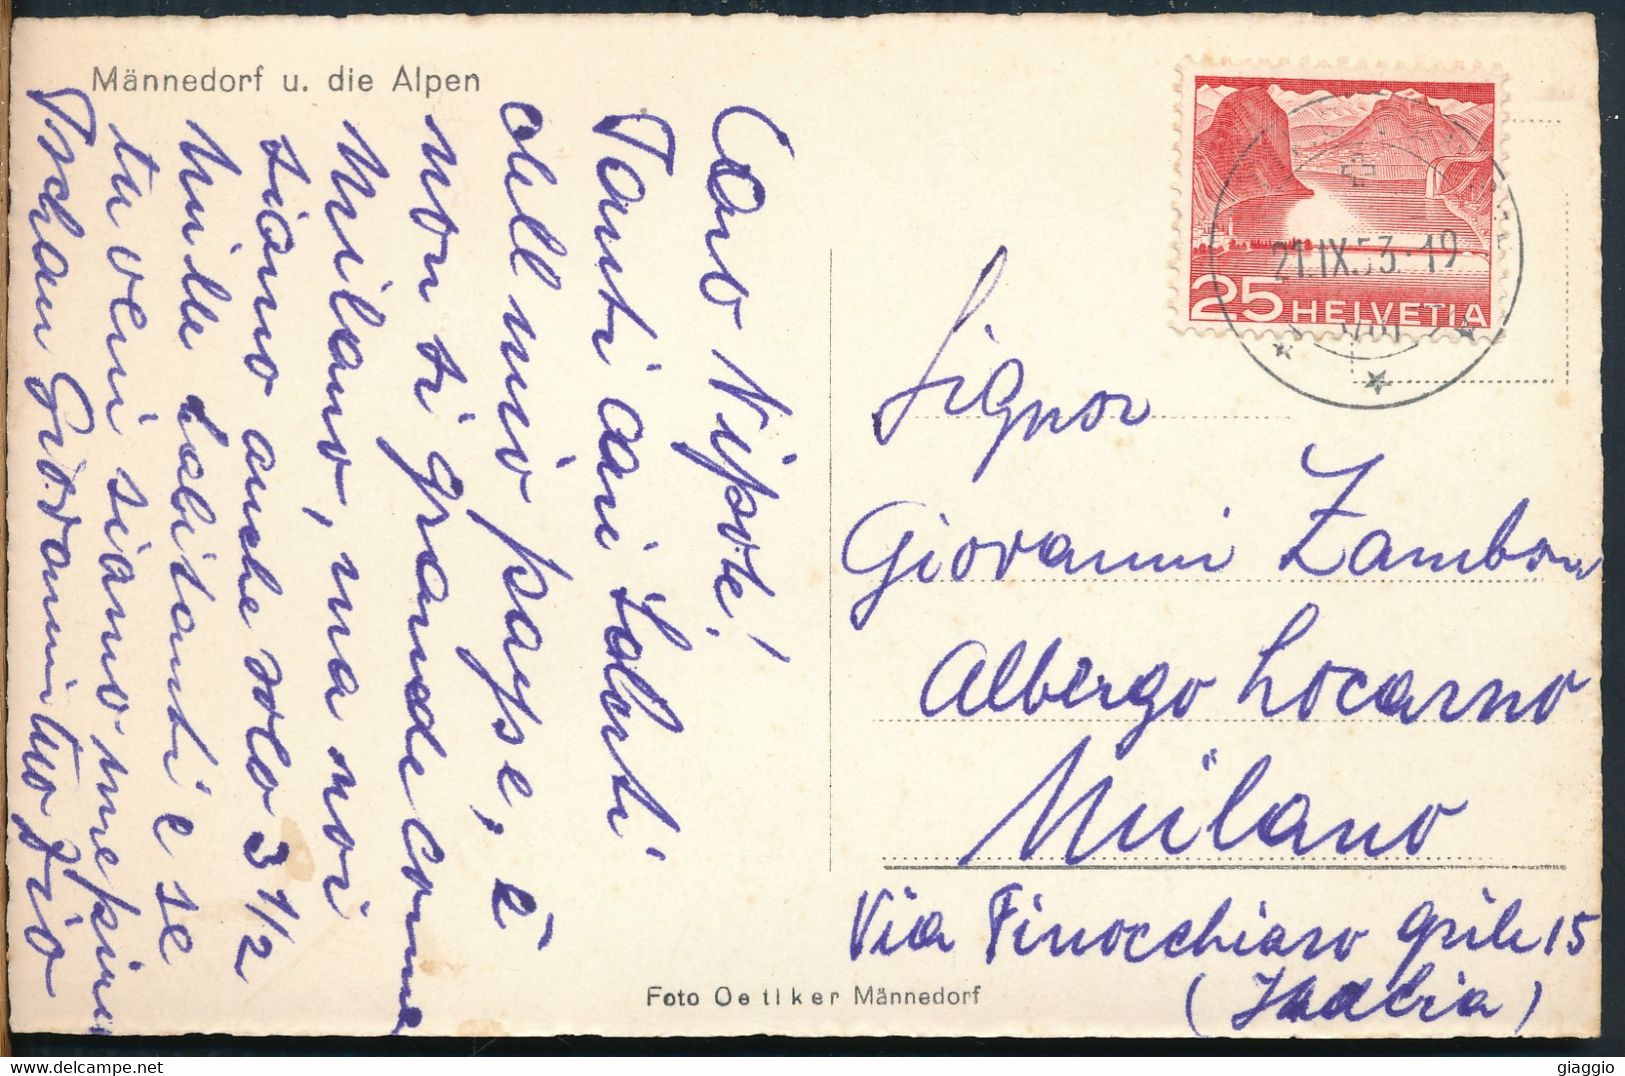 Männedorf u. die Alpen
Caro Nipote!
Tanti cari Saluti
dell mio payse, è
non si grande come
Milano, ma noi
siamo anche solo 3 1/2
mille habitanti e se
tu veni siamo
Giovanni tuo Zio
25 HELVETIA
21.IX.53.-19
Signor
Giovanni Zamboni
Albergo Locarno
Milano
Via Finocchiaro Aprile 15
(Italia)
Foto Oetiker Männedorf
giaggio